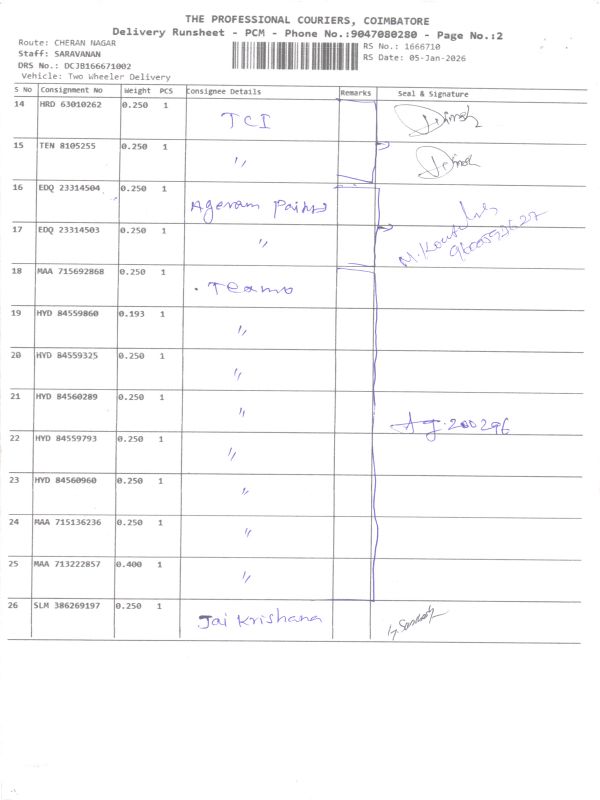 THE PROFESSIONAL COURIERS, COIMBATORE
Delivery Runsheet - PCM - Phone No.:9047080280 - Page No.:2
Route: CHERAN NAGAR
RS No.: 1666710
Staff: SARAVANAN
RS Date: 05-Jan-2026
DRS No.: DCJB166671002
Vehicle: Two Wheeler Delivery
S No Consignment No Weight PCS Consignee Details Remarks Seal & Signature
14 HRD 63010262 0.250 1 TCI
15 TEN 8105255 0.250 1 〃
16 EDQ 23314504 0.250 1 Ageram Paints
17 EDQ 23314503 0.250 1 〃
18 MAA 715692868 0.250 1
19 HYD 84559860 0.193 1 〃
20 HYD 84559325 0.250 1 〃
21 HYD 84560289 0.250 1 〃
22 HYD 84559793 0.250 1 〃
23 HYD 84560960 0.250 1 〃
24 MAA 715136236 0.250 1 〃
25 MAA 713222857 0.400 1 〃
26 SLM 386269197 0.250 1 Jai Krishana